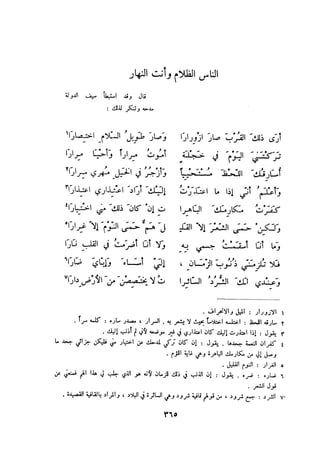 الناس الظلام وأنت النهار
قال وقد استبطأ سيف الدولة
مدحه وتنكر لذلك :
أَرَى ذٰلكَ القُرْبَ صارَ ازْوِرارَا وَصارَ طَوِيلُ السّلامِ اختِصارَا١
تَرَكْتَنيَ اليَوْمَ في خَجْلَةٍ أمُوتُ مِراراً وَأحْيَا مِرارَا
أُسارِقُكَ اللّحْظَ مُسْتَحْيِياً وَأزْجُرُ في الخَيلِ مُهري سِرارَا٢
وَأعْلَمُ أنّي إذا ما اعتَذَرْتُ إلَيْكَ أرَادَ اعْتِذاري اعتِذارَا٣
كَفَرْتُ مَكارِمَكَ الباهِرا تِ إنْ كانَ ذٰلكَ مني اختِيارَا٤
وَلَكِنْ حَمَى الشّعْرَ إلاّ القَليـ ـلَ هَمٌّ حَمَى النّوْمَ إلاّ غِرارَا٥
وَما أنَا أسقَمْتُ جسمي بِهِ وَلا أنَا أضرَمْتُ في القلبِ نَارَا
فَلا تُلزِمَنّي ذُنُوبَ الزّمَانِ ، إلَيّ أسَاءَ وَإيّايَ ضَارَا٦
وَعِنْدي لَكَ الشُّرُدُ السّائِرا تُ لا يَختَصِصْنَ منَ الأرْضِ دارَا٧
١ الازورار : الميل والانحراف .
٢ سارقه اللحظ : اختلسه اختلاساً بحيث لا يشعر به . السرار ، مصدر ساره : كلمه سراً .
٣ يقول : إذا اعتذرت إليك كان اعتذاري في غير موضعه لأني لم أذنب إليك .
٤ كفران النعمة جحدها . يقول : إن كان تركي لمدحك عن اختيار مني فليكن جزائي جحد ما
وصل إلي من مكارمك الباهرة وهي غاية اللؤم .
٥ الغرار : النوم القليل .
٦ ضاره : ضره . يقول : إن الذنب في ذلك للزمان لأنه هو الذي جلب لي هذا الهم فمنعني عن
قول الشعر .
٧ الشرد : جمع شرود ، من قولهم قافية شرود وهي السائرة في البلاد ، والمراد بالقافية القصيدة .
٣٦٥